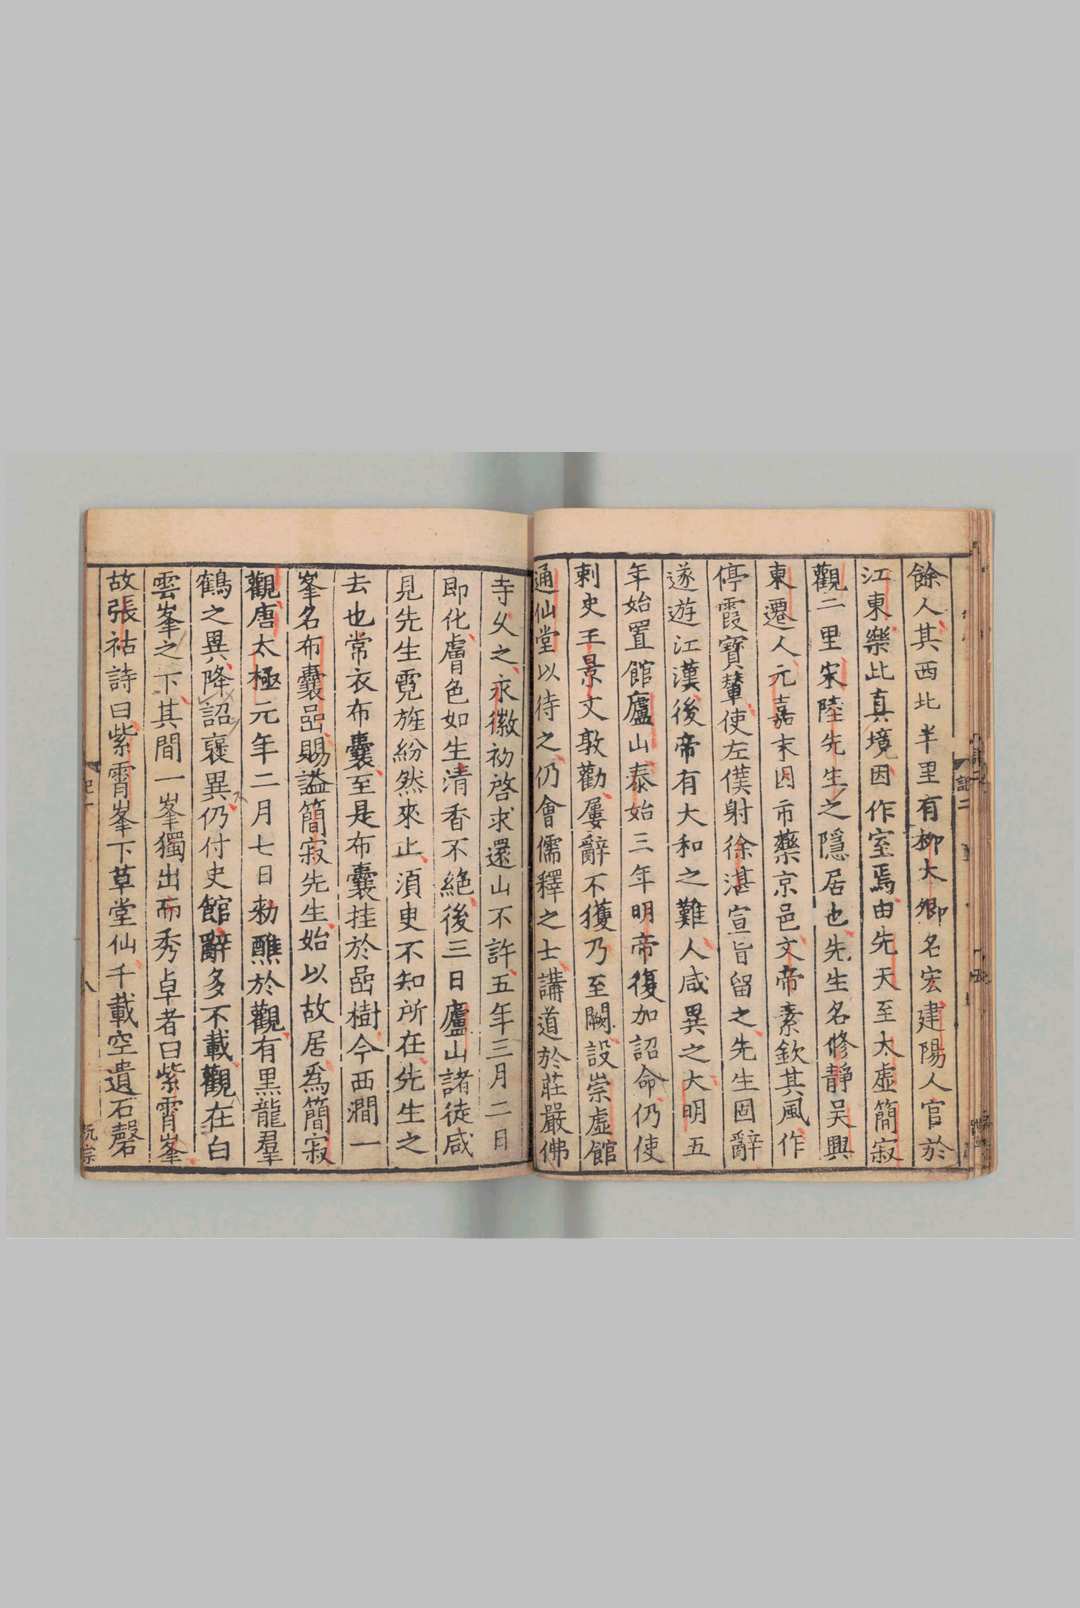 餘人其西北半里有柳大卿名宏建陽人官於
江東樂此真境因作室焉由先天至太虛簡寂
觀二里宋陸先生之隱居也先生名修靜吳興
東遷人元嘉末因市藥京邑文帝素欽其風作
停霞寶輦使左僕射徐湛宣旨留之先生固辭
遂遊江漢後帝有大和之難人咸異之大明五
年始置館廬山泰始三年明帝復加詔命仍使
刺史王景文敦勸屢辭不獲乃至闕設崇虛館
通仙堂以待之仍會儒釋之士講道於莊嚴佛
寺久之永徽初啓求還山不許五年三月二日
即化膚色如生清香不絶後三日廬山諸徒咸
見先生霓旌紛然來止須臾不知所在先生之
去也常衣布囊至是布囊挂於嵒樹今西澗一
峯名布囊嵒賜謚簡寂先生始以故居爲簡寂
觀唐太極元年二月七日勑醮於觀有黑龍羣
鶴之異降詔襃異仍付史館辭多不載觀在白
雲峯之下其間一峯獨出而秀卓者曰紫霄峯
故張祜詩曰紫霄峯下草堂仙千載空遺石磬
記二